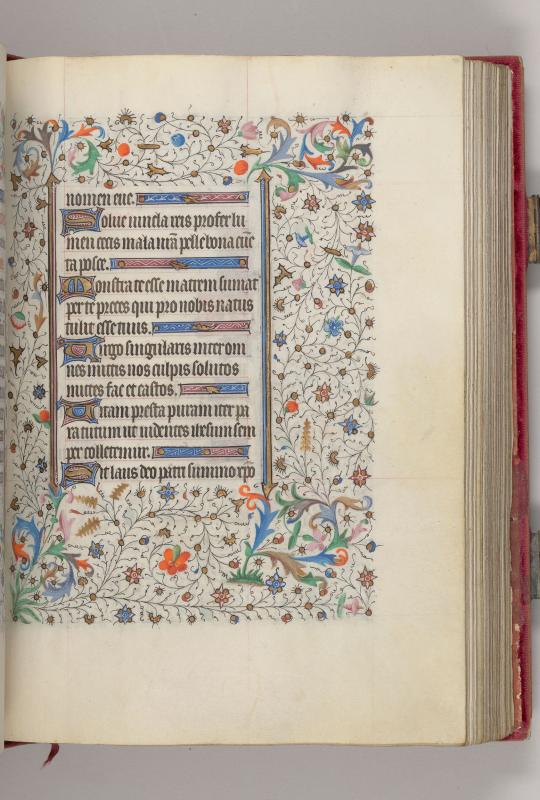 nomen eue.
Solue uincla reis profer lu
men cecis mala nr̄a pelle bona cūc
ta posce.
Monstra te esse matrem sumat
per te preces qui pro nobis natus
tulit esse tuus.
Uirgo singularis inter om
nes mitis nos culpis solutos
mites fac et castos.
Uitam presta puram iter pa
ra tutum ut uidentes ihesum sem
per colletemur.
Sit laus deo patri summo xp̄o